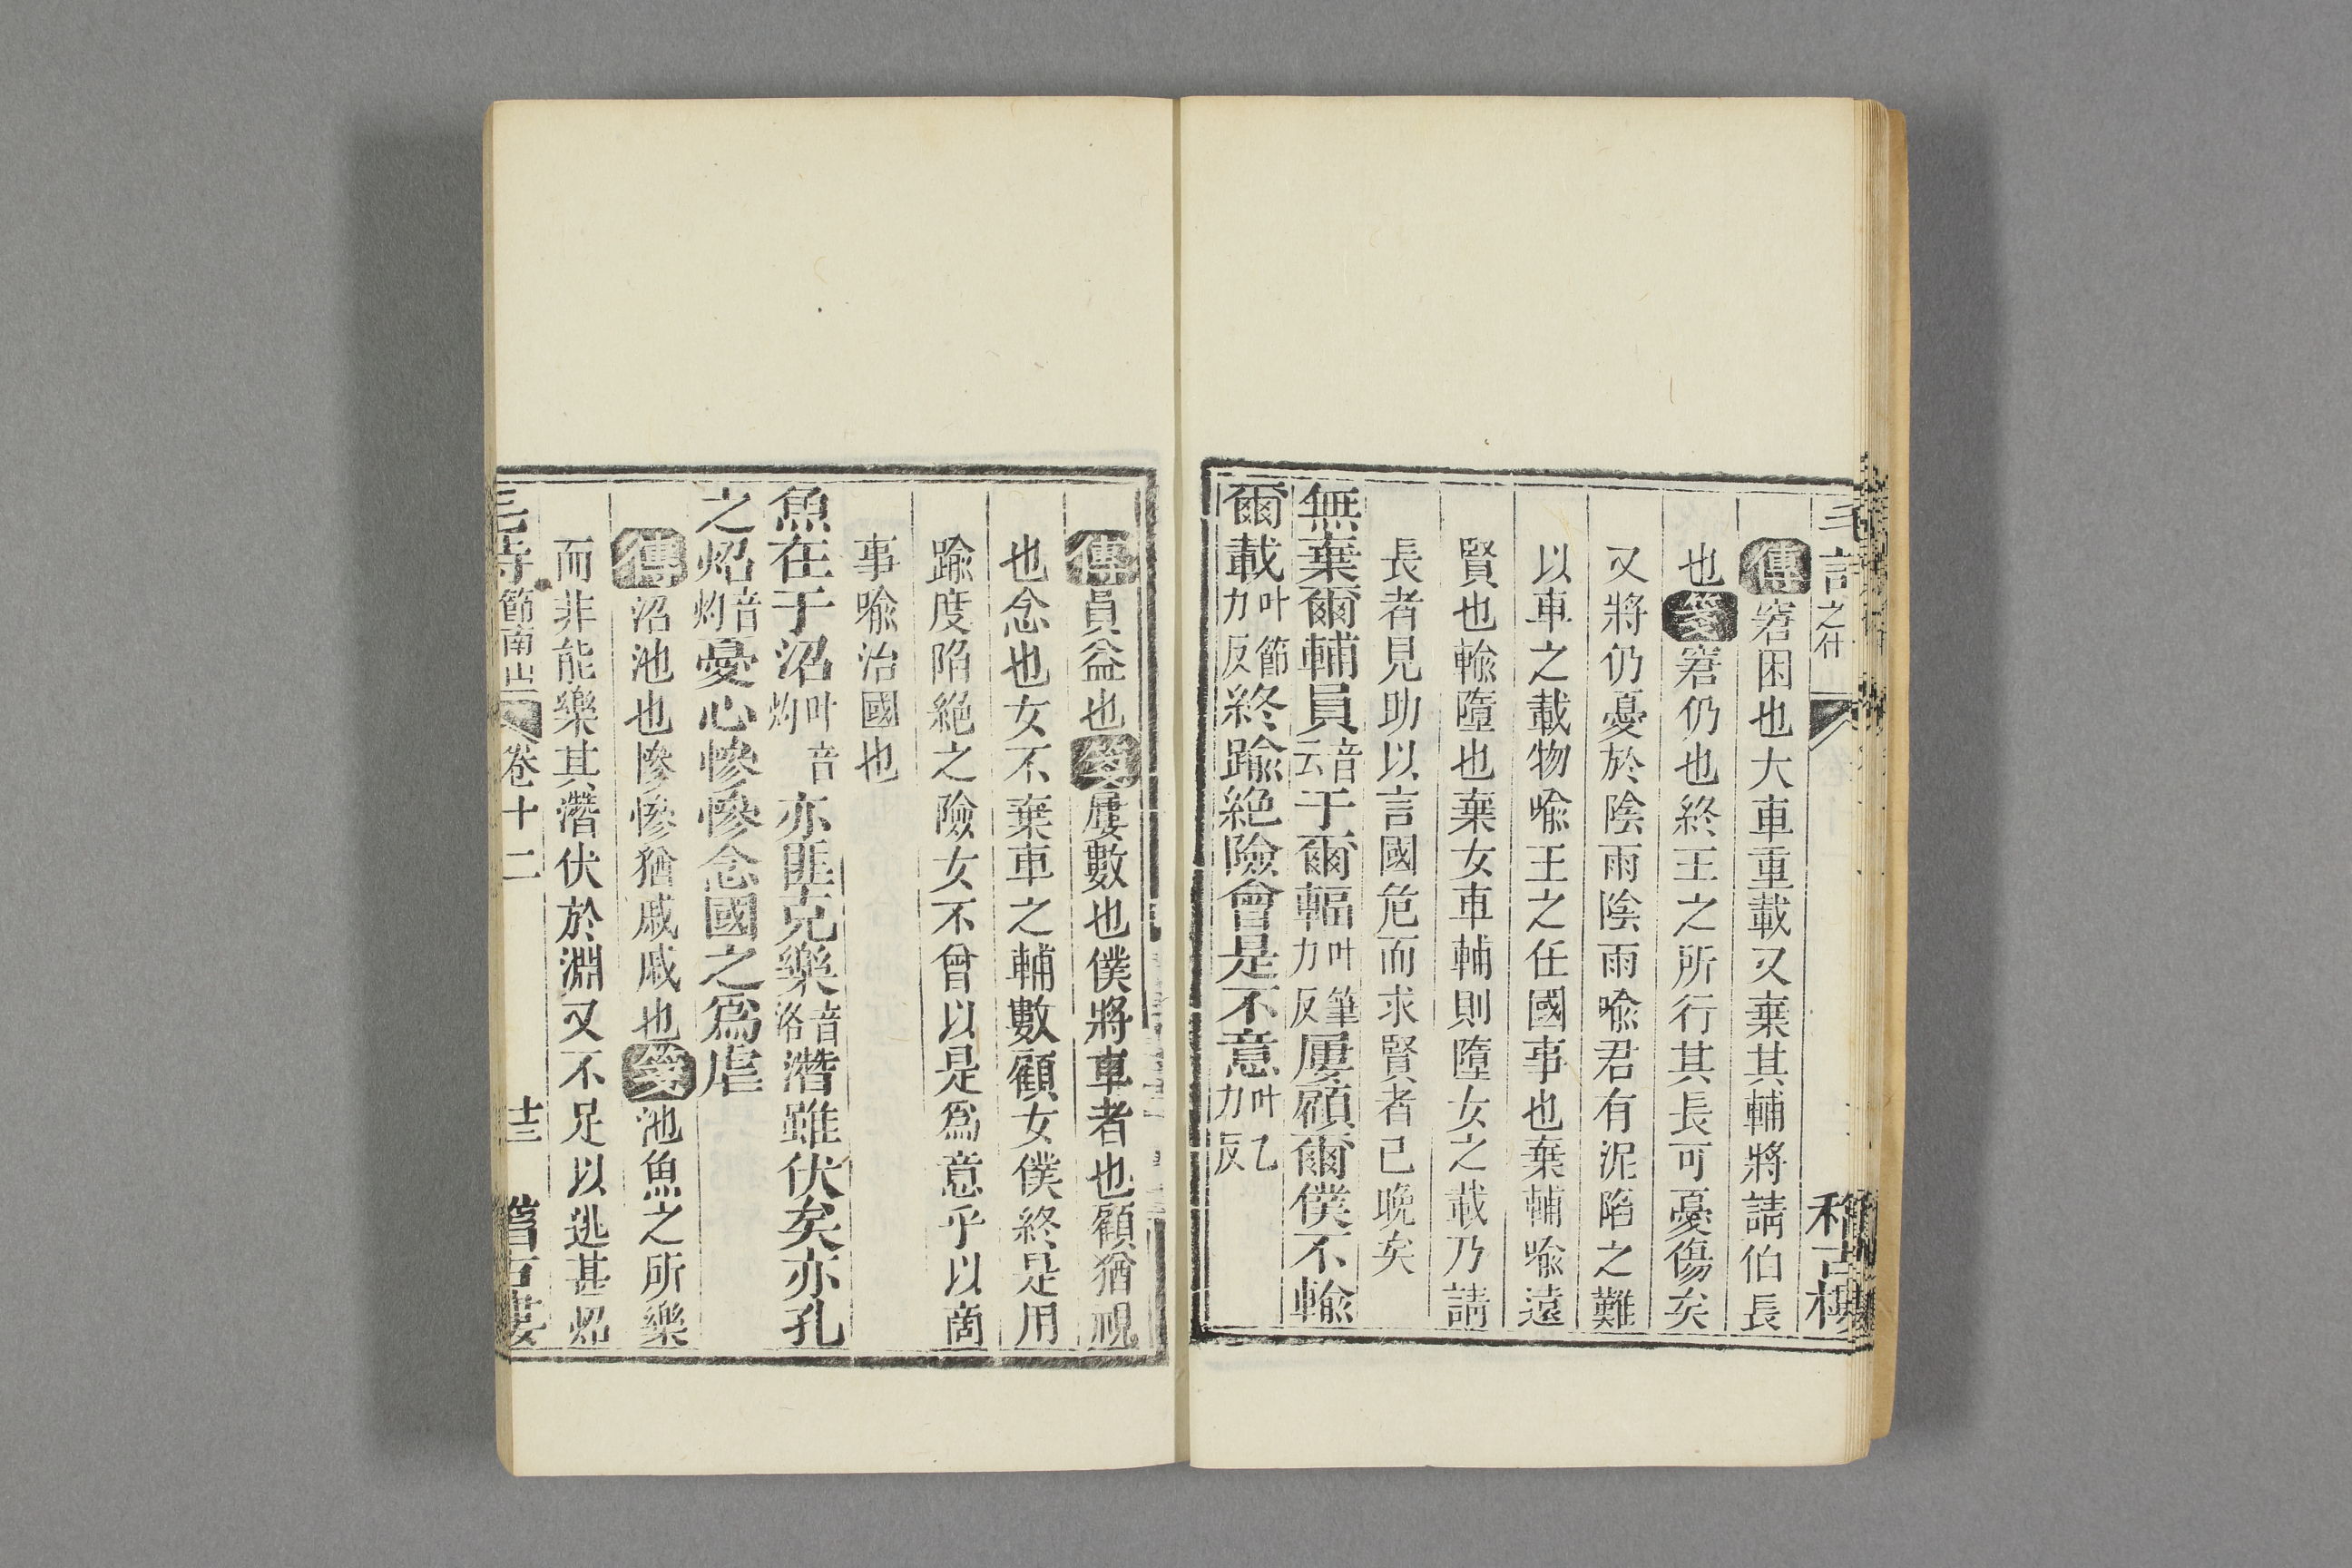 毛詩之什 稽古樓
傳窘困也大車重載又棄其輔將請伯長
也箋窘仍也終王之所行其長可憂傷矣
又將仍憂於陰雨陰雨喻君有泥陷之難
以車之載物喻王之任國事也棄輔喻遠
賢也輸隨也棄女車輔則墮女之載乃請
長者見助以言國危而求賢者己晚矣
無棄爾輔員音云于爾輻叶筆力反屢顧爾僕不輸
爾載叶節力反終踰絶險曾是不意叶乙力反
傳員益也箋屢數也僕將車者也顧猶視
也念也女不棄車之輔數顧女僕終是用
踰度陷絶之險女不曾以是爲意乎以商
事喻治國也
魚在于沼叶音灼亦匪克樂音洛潛雖伏矣亦孔
之炤音灼憂心慘慘念國之爲虐
傳沼池也慘慘猶戚戚也箋池魚之所樂
而非能樂其潛伏於淵又不足以逃甚炤
毛詩節南山 卷十二 十三 稽古樓